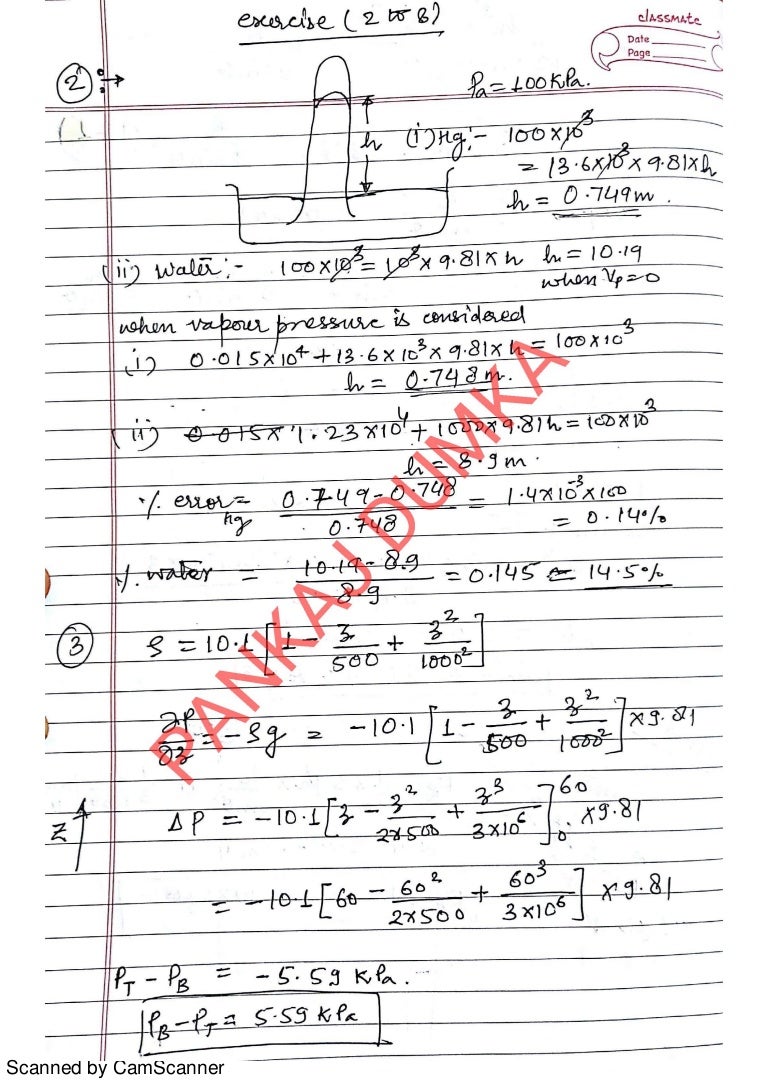 exercise (2 to 8)
classmate
Date
Page
② :→
Pa = 100 KPa.
h (i) Hg:- 100×10³
= 13.6×10³×9.81×h
h = 0.749m.
(ii) water:- 100×10³ = 10³×9.81×h h = 10.19
when Vp=0
when vapour pressure is considered
(i) 0.015×10⁴ + 13.6×10³×9.81×h = 100×10³
h = 0.748m.
(ii) 0.015× 1.23×10⁴ + 1000×9.81h = 100×10³
h = 8.9m.
% error Hg = (0.749-0.748)/0.748 = 1.4×10⁻³×100
= 0.14%
%. water = (10.19-8.9)/8.9 = 0.145 = 14.5%
③ ρ = 10.1 [1 - z/500 + z²/1000²]
∂P/∂z = -ρg = -10.1 [1 - z/500 + z²/1000²] ×9.81
z↑ ΔP = -10.1 [z - z²/(2×500) + z³/(3×10⁶)]₀⁶⁰ ×9.81
= -10.1 [60 - 60²/(2×500) + 60³/(3×10⁶)] ×9.81
P_T - P_B = -5.59 KPa.
P_B - P_T = 5.59 KPa
PANKAJ DUMKA
Scanned by CamScanner